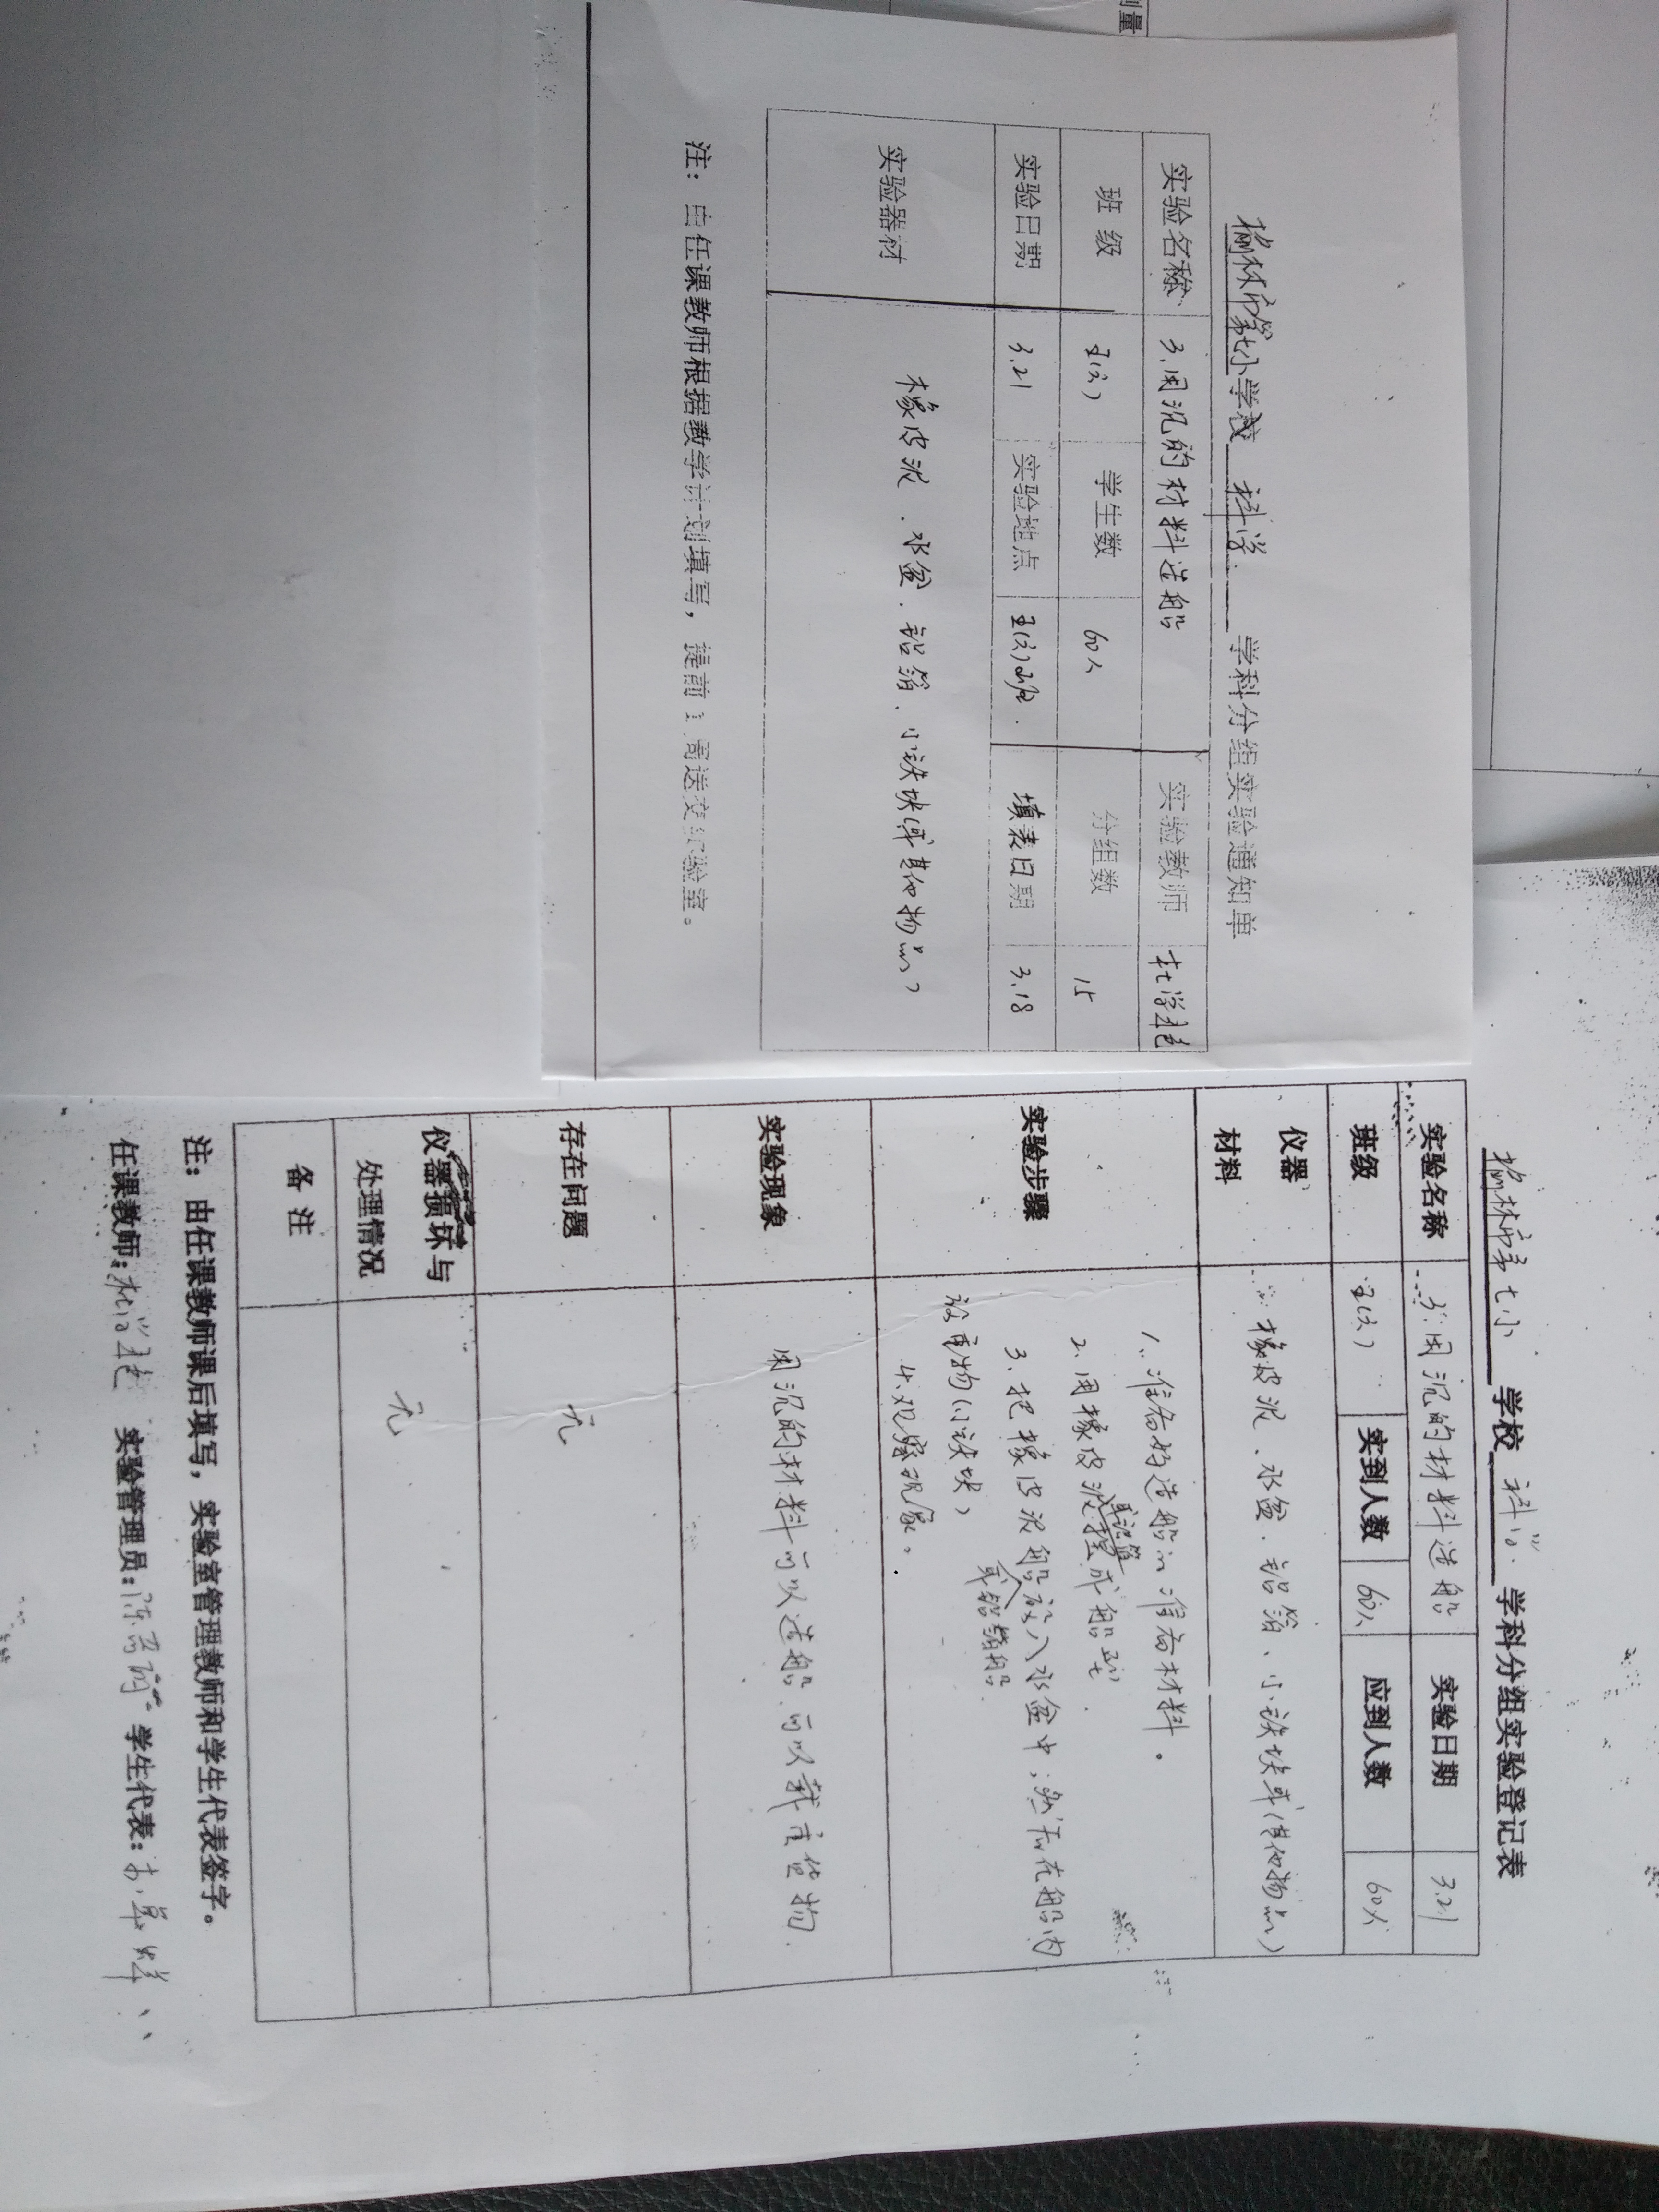 则量
榆林市第七小学校 科学 学科分组实验通知单
实验名称 3.用沉的材料造船 实验教师
班 级 五(3) 学生数 60人 分组数 15
实验日期 3.21 实验地点 五(3)班. 填表日期 3.18
实验器材 橡皮泥、水盆、铝箔、小铁块(或其他物品)
注：由任课教师根据教学计划填写，提前1周送交实验室。
榆林市第七小 学校 科学 学科分组实验登记表
实验名称 3.用沉的材料造船 实验日期 3.21
班级 五(3) 实到人数 60人 应到人数 60人
仪器
材料 橡皮泥、水盆、铝箔、小铁块或(其他物品)
实验步骤 1.准备好造船的准备材料。
2.用橡皮泥或铝箔捏成船型.
3.把橡皮泥船或铝箔船放入水盆中;然后在船内
放重物(小铁块)
4.观察现象。
实验现象 用沉的材料可以造船.可以载重货物.
存在问题 无
仪器损坏与
处理情况 无
备 注
注：由任课教师课后填写，实验室管理教师和学生代表签字。
任课教师: 实验管理员: 学生代表: